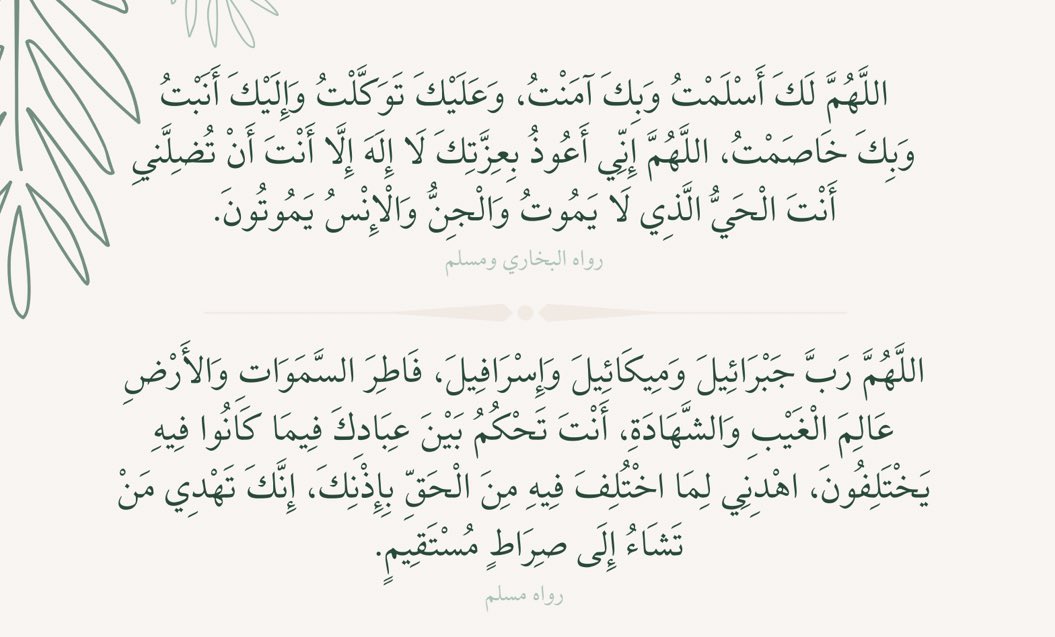 اللَّهُمَّ لَكَ أَسْلَمْتُ وَبِكَ آمَنْتُ، وَعَلَيْكَ تَوَكَّلْتُ وَإِلَيْكَ أَنَبْتُ
وَبِكَ خَاصَمْتُ، اللَّهُمَّ إِنِّي أَعُوذُ بِعِزَّتِكَ لَا إِلَهَ إِلَّا أَنْتَ أَنْ تُضِلَّنِي
أَنْتَ الْحَيُّ الَّذِي لَا يَمُوتُ وَالْجِنُّ وَالْإِنْسُ يَمُوتُونَ.
رواه البخاري ومسلم
اللَّهُمَّ رَبَّ جَبْرَائِيلَ وَمِيكَائِيلَ وَإِسْرَافِيلَ، فَاطِرَ السَّمَوَاتِ وَالأَرْضِ
عَالِمَ الْغَيْبِ وَالشَّهَادَةِ، أَنْتَ تَحْكُمُ بَيْنَ عِبَادِكَ فِيمَا كَانُوا فِيهِ
يَخْتَلِفُونَ، اهْدِنِي لِمَا اخْتُلِفَ فِيهِ مِنَ الْحَقِّ بِإِذْنِكَ، إِنَّكَ تَهْدِي مَنْ
تَشَاءُ إِلَى صِرَاطٍ مُسْتَقِيمٍ.
رواه مسلم